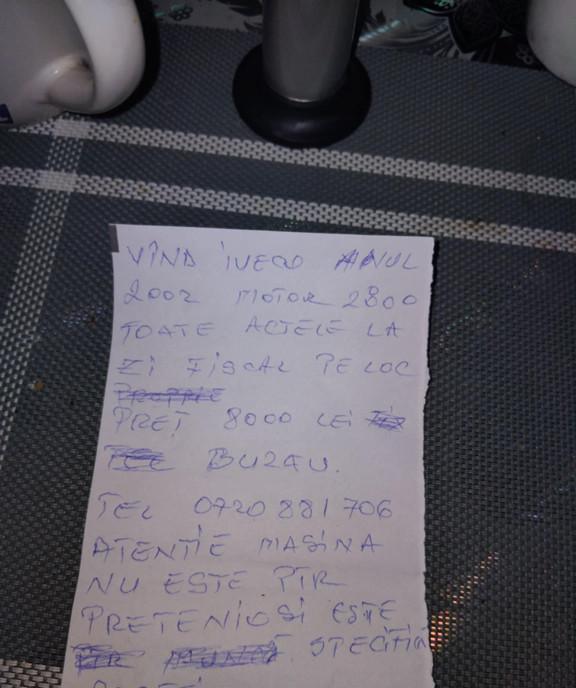 VÎND IVECO ANUL
2002 MOTOR 2800
TOATE ACTELE LA
ZI FISCAL PE LOC
PREȚ 8000 LEI
BUZAU.
TEL 0720 881 706
ATENTIE MASINA
NU ESTE PTR
PRETENIOSI ESTE
SPECIFIC